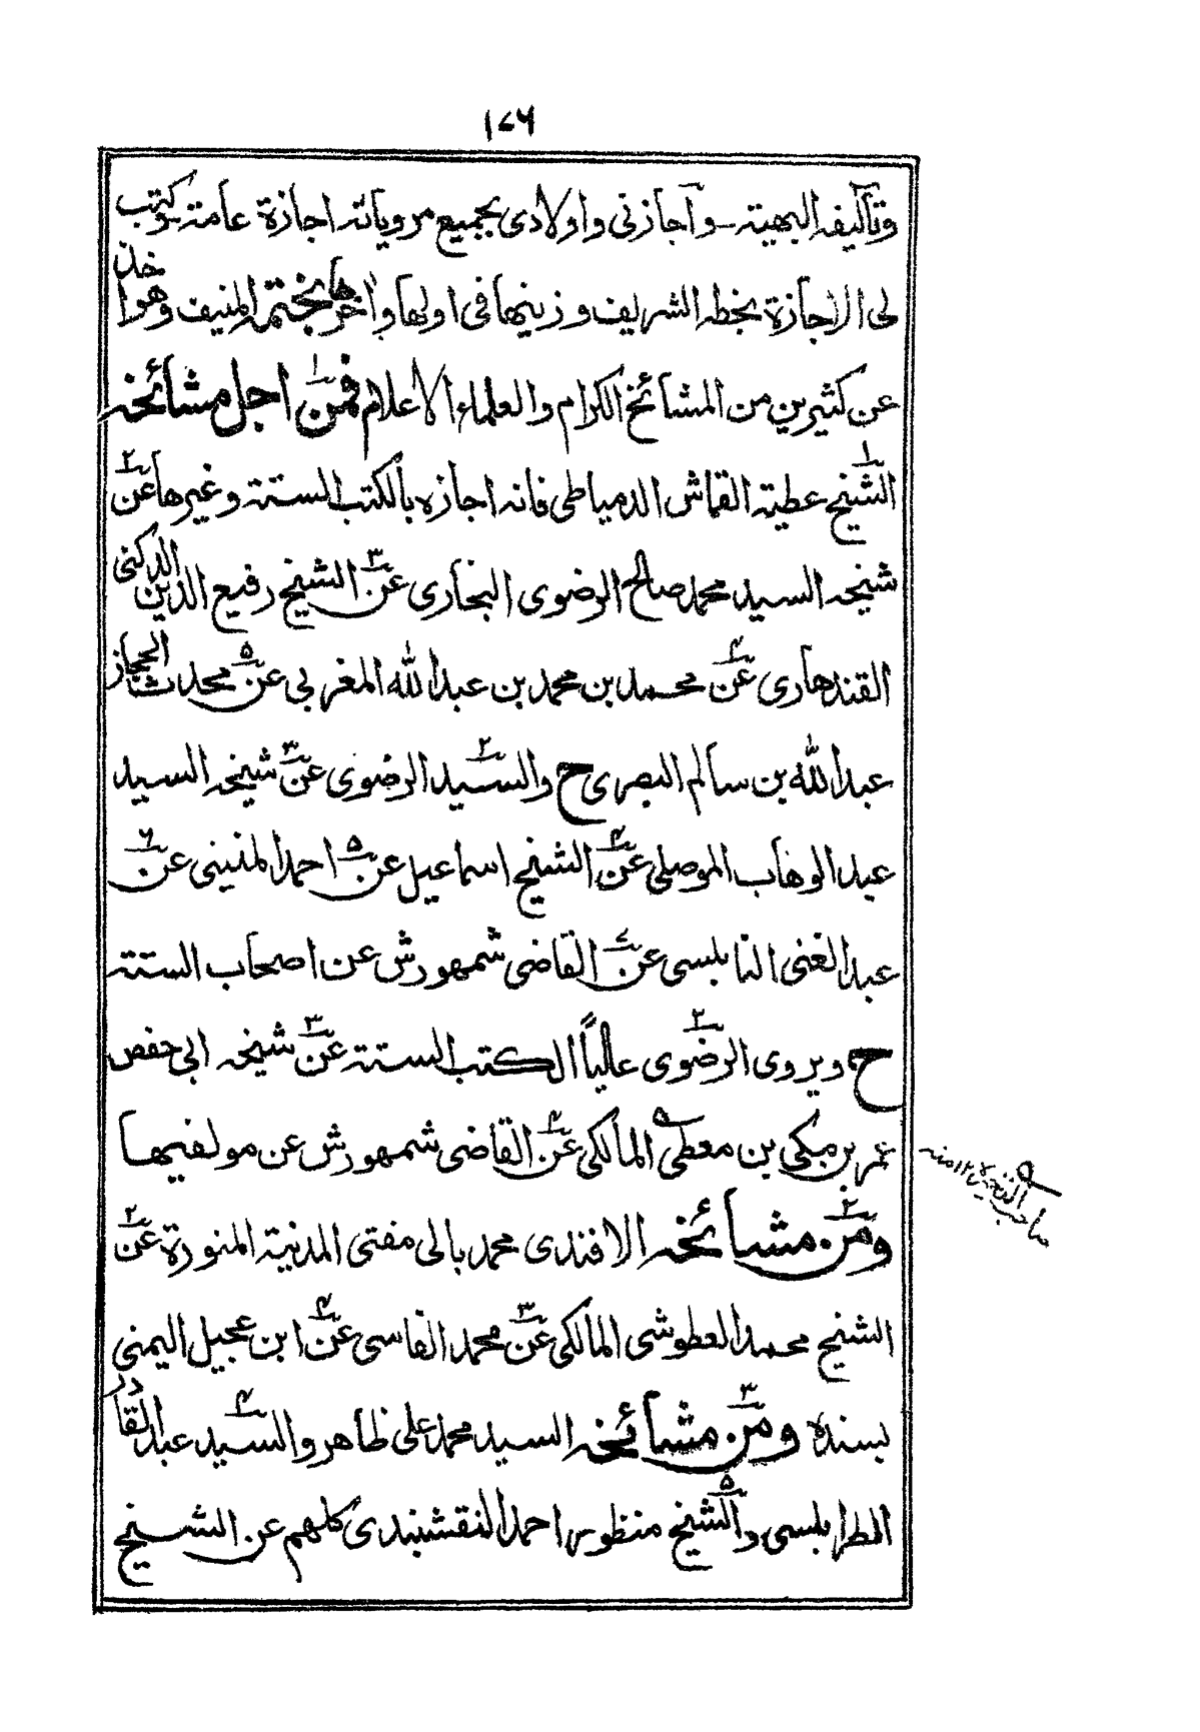 ١٧٦
وتآليفه البهية ـ وآجازني واولادي بجميع مروياته اجازة عامة وكتب
لي الاجازة بخطه الشريف وزينها في اولها وآخرها بختمه المنيف وهو اخذ
عن كثيرين من المشائخ الكرام والعلماء الاعلام فمن ١ اجل مشائخه
الشيخ ١ عطية القماش الدمياطي فانه اجازه بالكتب الستة وغيرها عن ٢
شيخه السيد محمد صالح الرضوي البخاري عن ٣ الشيخ رفيع الدين الدكني
القندهاري عن ٤ محمد بن محمد بن عبد الله المغربي عن ٥ محدث الحجاز
عبد الله بن سالم البصري ح والسيد ٢ الرضوي عن ٣ شيخه السيد
عبد الوهاب الموصلي عن ٤ الشيخ اسماعيل عن ٥ احمد المنيني عن ٦
عبد الغني النابلسي عن ٧ القاضي شمهورش عن اصحاب الستة
ح ويروي الرضوي ٢ عالياً الكتب الستة عن ٣ شيخه ابي حفص
عمر بن مكي بن معطي المالكي عن ٤ القاضي شمهورش عن مولفيها
صاحب الذخيرة ١٢ منه
ومن ٢ مشائخه الافندي محمد بالي مفتي المدنية المنورة عن ٢
الشيخ محمد العطوشي المالكي عن ٣ محمد الفاسي عن ٤ ابن عجيل اليمني
بسنده ومن ٣ مشائخه السيد محمد علي ظاهر والسيد ٤ عبد القادر
الطرابلسي والشيخ ٥ منظور احمد النقشبندي كلهم عن الشيخ